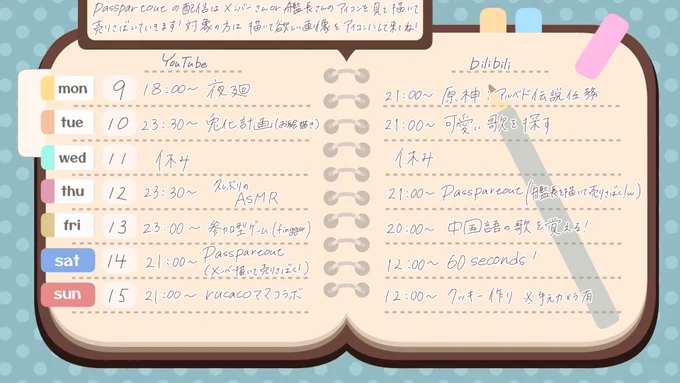 Passpartoutの配信はメンバーさんor艦長さんのアイコンを見て描いて
売りさばいていきます！対象の方は描いて欲しい画像をアイコンにして来てね！
YouTube
mon 9 18:00～ 夜廻
tue 10 23:30～ 兎化計画(お絵描き)
wed 11 休み
thu 12 23:30～ 久しぶりの
ASMR
fri 13 23:00～ 参加型ゲーム
sat 14 21:00～ Passpartout
(メンバー描いて売りさばく！)
sun 15 21:00～ rucacoママコラボ
bilibili
21:00～ 原神！アルベド伝説任務
21:00～ 可愛い歌を探す
休み
21:00～ Passpartout(艦長を描いて売りさばく!
20:00～ 中国語の歌を覚える！
12:00～ 60 seconds！
12:00～ クッキー作り ※手元カメラ有